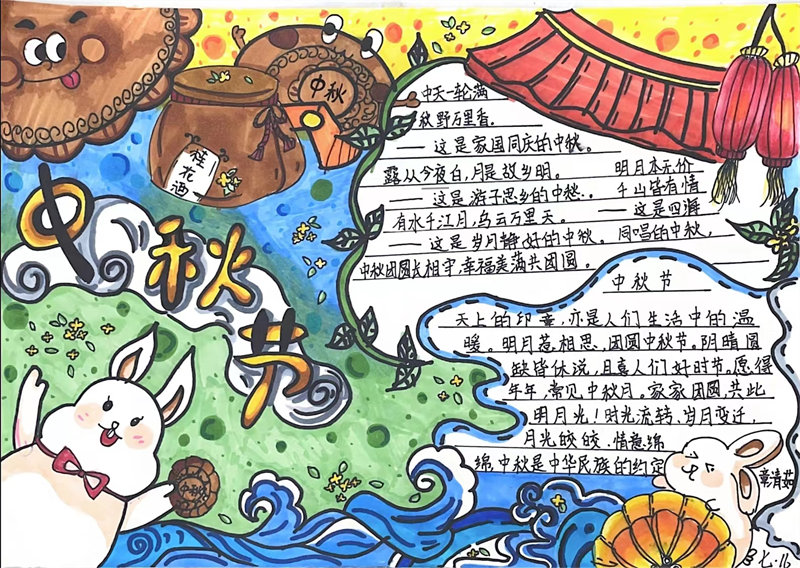 中秋
桂花酒
中秋节
中天一轮满
秋野万里香。
——这是家国同庆的中秋。
露从今夜白，月是故乡明。 明月本无价
——这是游子思乡的中秋。 千山皆有情
有水千江月，乌云万里天。 ——这是四海
——这是岁月静好的中秋。 同唱的中秋。
中秋团圆长相守，幸福美满共团圆。
中秋节
天上的印章，亦是人们生活中的温
暖。明月惹相思，团圆中秋节。阴晴圆
缺皆休说，且喜人们好时节，愿得
年年，常见中秋月。家家团圆，共此
明月光！时光流转、岁月变迁，
月光皎皎 情意绵
绵，中秋是中华民族的约定
中秋
章清茹